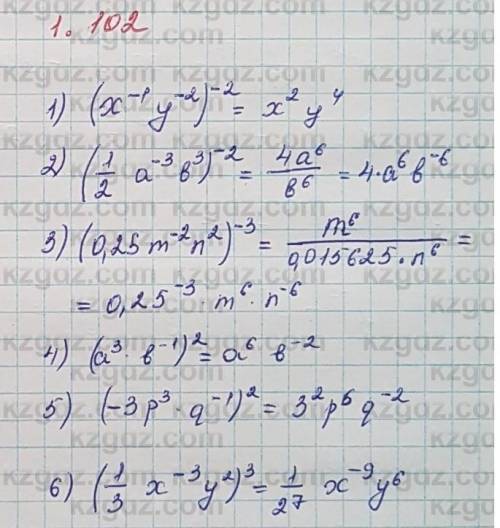 1. 102
1) (x⁻¹ y⁻²)⁻² = x² y⁴
2) (1/2 a⁻³ b³)⁻² = 4a⁶/b⁶ = 4·a⁶b⁻⁶
3) (0,25 m⁻² n²)⁻³ = m⁶/0,015625·n⁶ =
= 0,25⁻³ · m⁶ · n⁻⁶
4) (a³ · b⁻¹)² = a⁶ b⁻²
5) (-3p³ · q⁻¹)² = 3²p⁶ q⁻²
6) (1/3 x⁻³y²)³ = 1/27 x⁻⁹y⁶